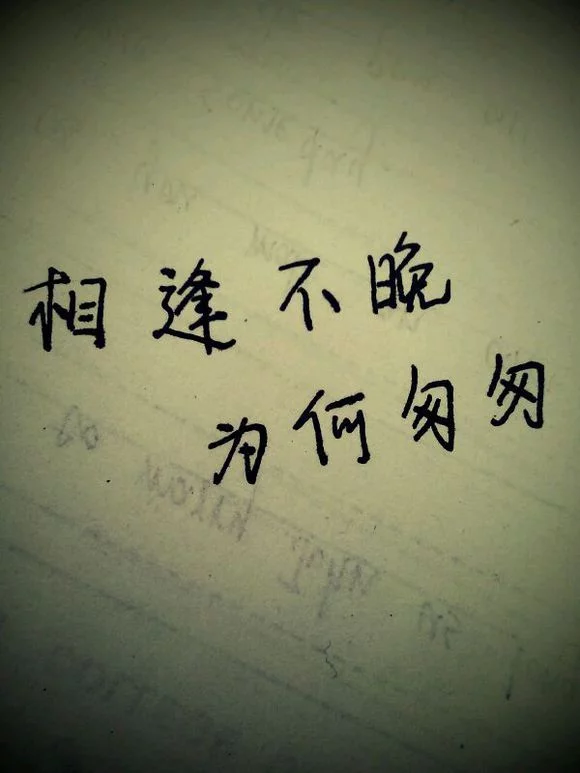 相逢不晚
为何匆匆